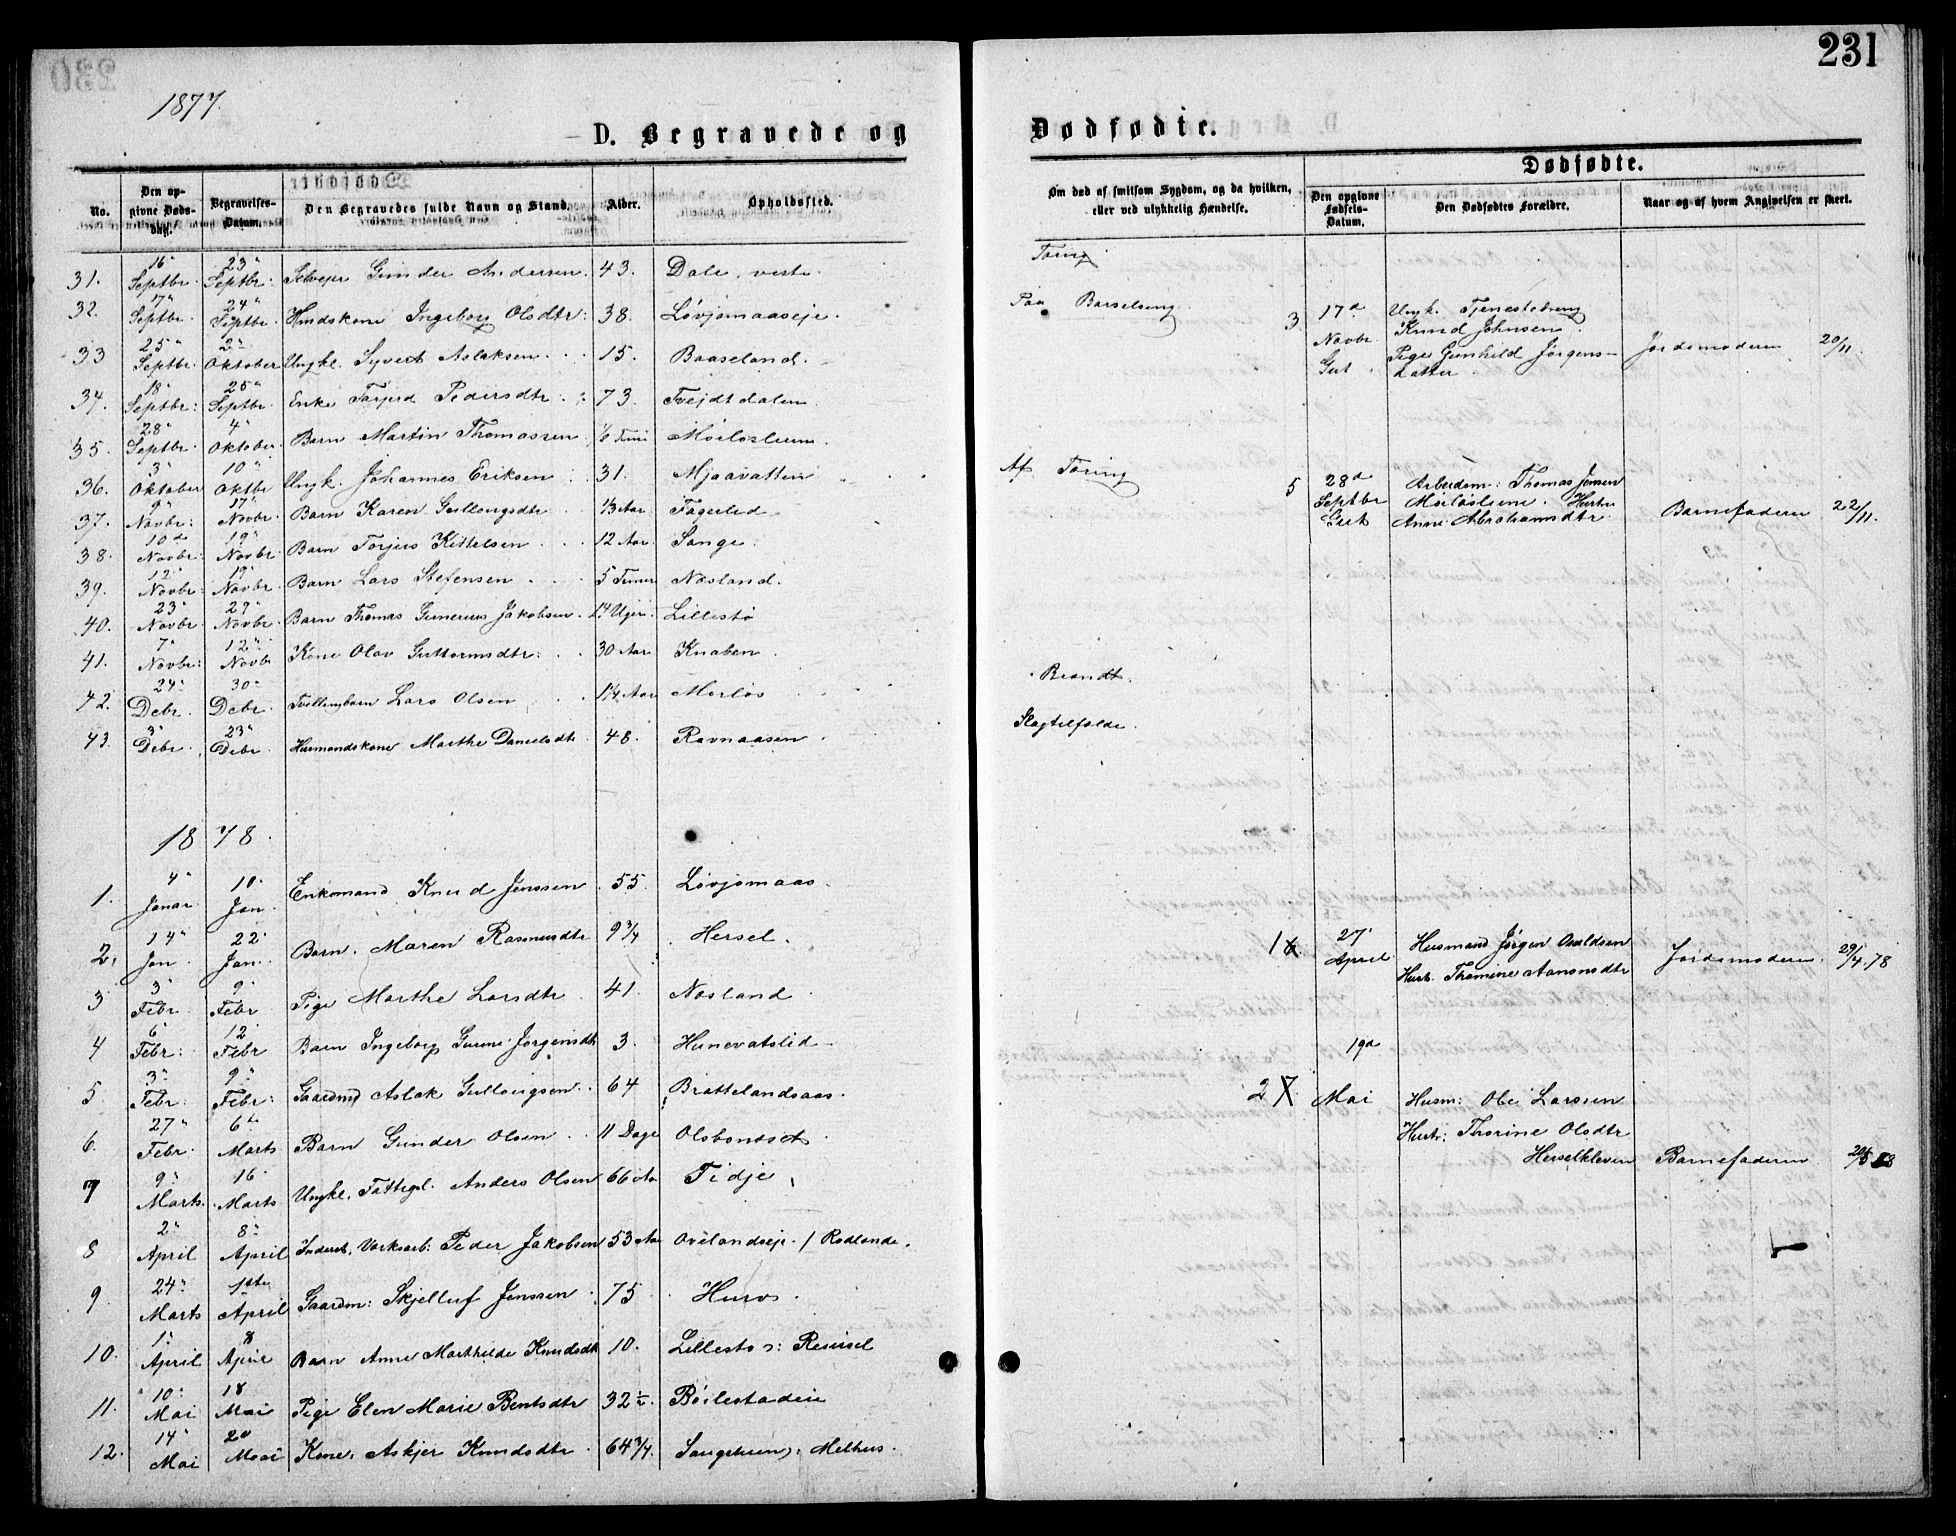 231
1877.
D. Begravede og Dødfødte.
Dødfødte.
No.
Den opgivne Døds-dag.
Begravelses-Datum.
Den Begravedes fulde Navn og Stand.
Alder.
Opholdssted.
Om død af smitsom Sygdom, og da hvilken, eller ved ulykkelig Hændelse.
Den opgivne Fødsels-Datum.
Den Dødfødtes Forældre.
Naar og af hvem Angivelsen er skeet.
31. 16" Septbr. 23" Septbr. Selvejer Gunder Andersen. 43. Dale, vestr. Tæring
32. 17" Septbr. 24" Septbr. Hmdskone Ingeborg Olsdtr: 38. Løvjomaaseje. Paa Barselseng.
33 25" Septbr. 2" Oktober Ungkl. Syvert Aslaksen 15. Baaseland.
34. 18" Septbr: 25" Septbr. Enke Torjerd Pedersdtr 73. Tvejdtdalen
35. 28" Septbr. 4" Oktober. Barn Martin Thomassen 1/6 Time
36. 3" Oktober 10" Oktbr Ungk. Johannes Eriksen 31. Mjaavatten Af Tæring
37. 9" Novbr: 17" Novbr. Barn Karen Gullougsdtr 1/3 Aar Fagerlid
38. 10de Novbr: 19" Novbr. Barn Torjus Kittelsen 12 Aar. Sange.
39. 12" Novbr: 19" Novbr. Barn Lars Stefensen 5 Timer Næsland.
40. 23" Novbr 29" Novbr. Barn Thomas Gunerius Jakobsen. 14 Uger. Lillestø
41. 7" Novbr: 12" Novbr Kone Olav Guttormsdtr: 30 Aar Knaben.
42. 24" Debr. 30" Debr. Tvillingbarn Lars Olsen 1 1/4 Aar Morløs Brandt.
43. 3" Debr. 23" Debr. Husmandskone Marthe Danielsdtr 48. Ravnaasen Slagtilfælde.
3. 17de Novbr Gut
Ungk. Tjenestedreng
Knud Johnsen
Pige Gunhild Jørgens-
datter
Jordemoderen 20/11.
5 28de Septbr Gut
Arbeidsm: Thomas Jensen
Hustru
Anne Abrahamsdtr
Barnefaderen 22/11.
1878.
1. 4" Januar 10. Jan. Enkemand Knud Jenssen 55. Løvjomaas.
2, 14" Jan. 22. Jan. Barn. Maren Rasmusdtr 9 3/4 Hersel.
3 3" Febr. 9" Febr Pige Marthe Larsdtr 41. Næsland
4 6" Febr: 12 Febr Barn Ingeborg Gurine Jørgensdtr 3. Hunevatslid
5 3" Febr: 9" Febr: Gaardmd Aslak Gullougsen 64 Brattelandsaas.
6. 27" Febr. 6te Marts Barn Gunder Olsen 11 Dage Olsbondset
7 9" Marts. 16 Marts Ungkl. Fattigl. Anders Olsen 66 Aar Tidje
8 2" April 8" April Inderst, Værksarb: Peder Jakobsen 53 Aar Ovelandseje
9. 24" Marts 1ste April Gaardm: Skjelluf Jenssen 75 Huvos.
10. 1" April 8 April Barn Anne Marthilde Knudsdtr 10. Lillestø
11. 10" Mai 18 Mai Pige Elen Marie Bentsdtr 32 1/2 Bøilestadeie
12. 14" Mai 20 Mai Kone, Askjer Knudsdtr 64 3/4. Melhus.
1 27" April
Husmand Jørgen Osuldsen
Hust. Thomine Aanonsdtr
Jordemoderen. 29/4 78
2 19de Mai
Husm: Ole Larssen
Hustr: Thorine Olsdtr
Herselkleven Barnefaderen